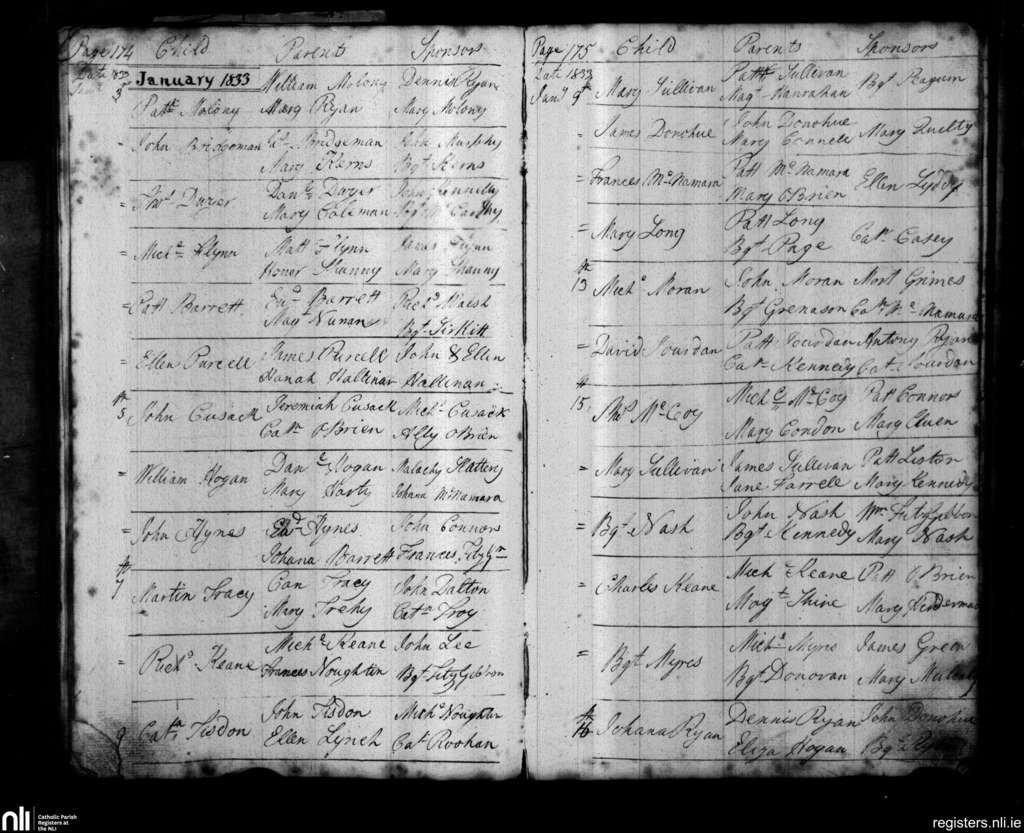 Page 174 Child Parents Sponsors
Date 1833 January 1833 William Molony Dennis Ryan
3 Patt Molony Mary Ryan Mary Molony
John Bridgeman Bridgeman John Murphy
Mary Kerns Bgt Kerns
= Thos Dwyer Danl Dwyer
Mary Coleman Bgt McCarthy
= Michl Flynn Matt Flynn James Flynn
Honor Shanny Mary Shanny
= Patt Barrett Edwd Barrett Richd Walsh
Magt Nunan Bgt
= Ellen Purcell James Purcell John & Ellen
Hanah Hallinan Hallinan
5th John Cusack Jeremiah Cusack Michl Cusack
Catn O'Brien Ally O'Brien
= William Hogan Danl Hogan Malachy Slattery
Mary Harty Johana McNamara
= John Hynes Edwd Hynes John Connors
Johana Barrett Frances Fitzgn
7th Martin Tracy Con Tracy John Dalton
Mary Trehy Catn Troy
= Richd Keane Michl Keane John Lee
Frances Noughtin Bgt Fitzgibbon
9 Catn Tisdon John Tisdon Michl Noughtin
Ellen Lynch Cat Roohan
Page 175 Child Parents Sponsors
Date 1833
Jany 9th Mary Sullivan Patt Sullivan Bgt
Magt Hanrahan
= James Donohue John Donohue Mary Quilty
Mary Connell
= Frances McNamara Patt McNamara Ellen Lyddy
Mary O'Brien
= Mary Long Patt Long Catn Casey
Bgt Page
13th Michl Moran John Moran Mort Grimes
Bgt Grenason Catn McNamara
= David Jourdan Patt Jourdan Antony Ryan
Catn Kennedy Catn Jourdan
15th Thos McCoy Michl McCoy Patt Connors
Mary Condon Mary Cluen
= Mary Sullivan James Sullivan Patt Lister
Jane Farrell Mary Kennedy
= Bgt Nash John Nash Wm Fitzgibbon
Bgt Kennedy Mary Nash
= Charles Keane Michl Keane Patt O'Brien
Magt Shine Mary
= Bgt Myres Michl Myres James Green
Bgt Donovan Mary
16th Johana Ryan Dennis Ryan John Donohue
Eliza Hogan Bgt
nli Catholic Parish
Registers at
the NLI
registers.nli.ie